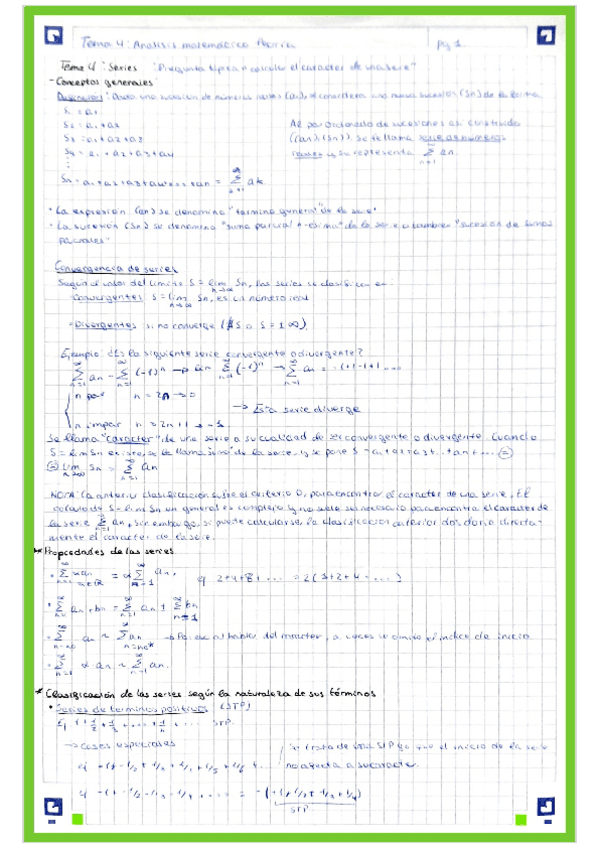 Tema 4: Analisis matematico teoria pg 1.
Tema 4: Series "Pregunta tipica → calcular el caracter de una serie"
- Conceptos generales
Definición: Dada una sucesión de números reales (an), se considera una nueva sucesión (Sn) de la forma
S1 = a1
S2 = a1+a2 Al par ordenado de sucesiones así construido
S3 = a1+a2+a3 ((an),(Sn)), se llama serie de números
S4 = a1+a2+a3+a4 reales y se representa ∑ an.
Sn = a1+a2+a3+a4+...+an = ∑ ak
· La expresión (an) se denomina "término general" de la serie
· La sucesión (Sn) se denomina "suma parcial n-ésima" de la serie o también "sucesión de sumas
parciales"
Convergencia de series
Según el valor del límite S = lim Sn, las series se clasifican en:
- Convergentes S = lim Sn, es un número real
- Divergentes si no converge (∄ S o S = ±∞)
Ejemplo: ¿Es la siguiente serie convergente o divergente?
∑ an = ∑ (-1)^n
n par n = 2n → 0
→ Esta serie diverge
n impar n = 2n+1 → -1
Se llama "caracter" de una serie a su cualidad de ser convergente o divergente. Cuando
S = lim Sn existe, se le llama "suma" de la serie, y se pone S = a1+a2+a3+...+an+... =
= lim Sn = ∑ an
NOTA: La anterior clasificación es el criterio 0, para encontrar el caracter de una serie. El
cálculo de S = lim Sn en general es complejo y no suele ser necesario para encontrar el caracter de
la serie ∑ an, sin embargo, si puede calcularse, la clasificación anterior dos daria directa-
mente el caracter de la serie.
* Propiedades de las series
· ∑ αan = α ∑ an, ej 2+4+8+... = 2(1+2+4+...)
· ∑ an + bn = ∑ an + ∑ bn
· ∑ an ~ ∑ an → Para hablar del caracter, a veces se omite el índice de inicio.
· ∑ α an ~ ∑ an.
* Clasificación de las series según la naturaleza de sus términos
· Series de términos positivos (STP)
Ej 1+1/2+1/3+...+1/n+... STP.
→ Casos especiales
Se trata de una STP ya que el inicio de la serie
no afecta a su caracter.
ej -1-1/2-1/3-1/4+... = -(1+1/2+1/3+1/4)
STP